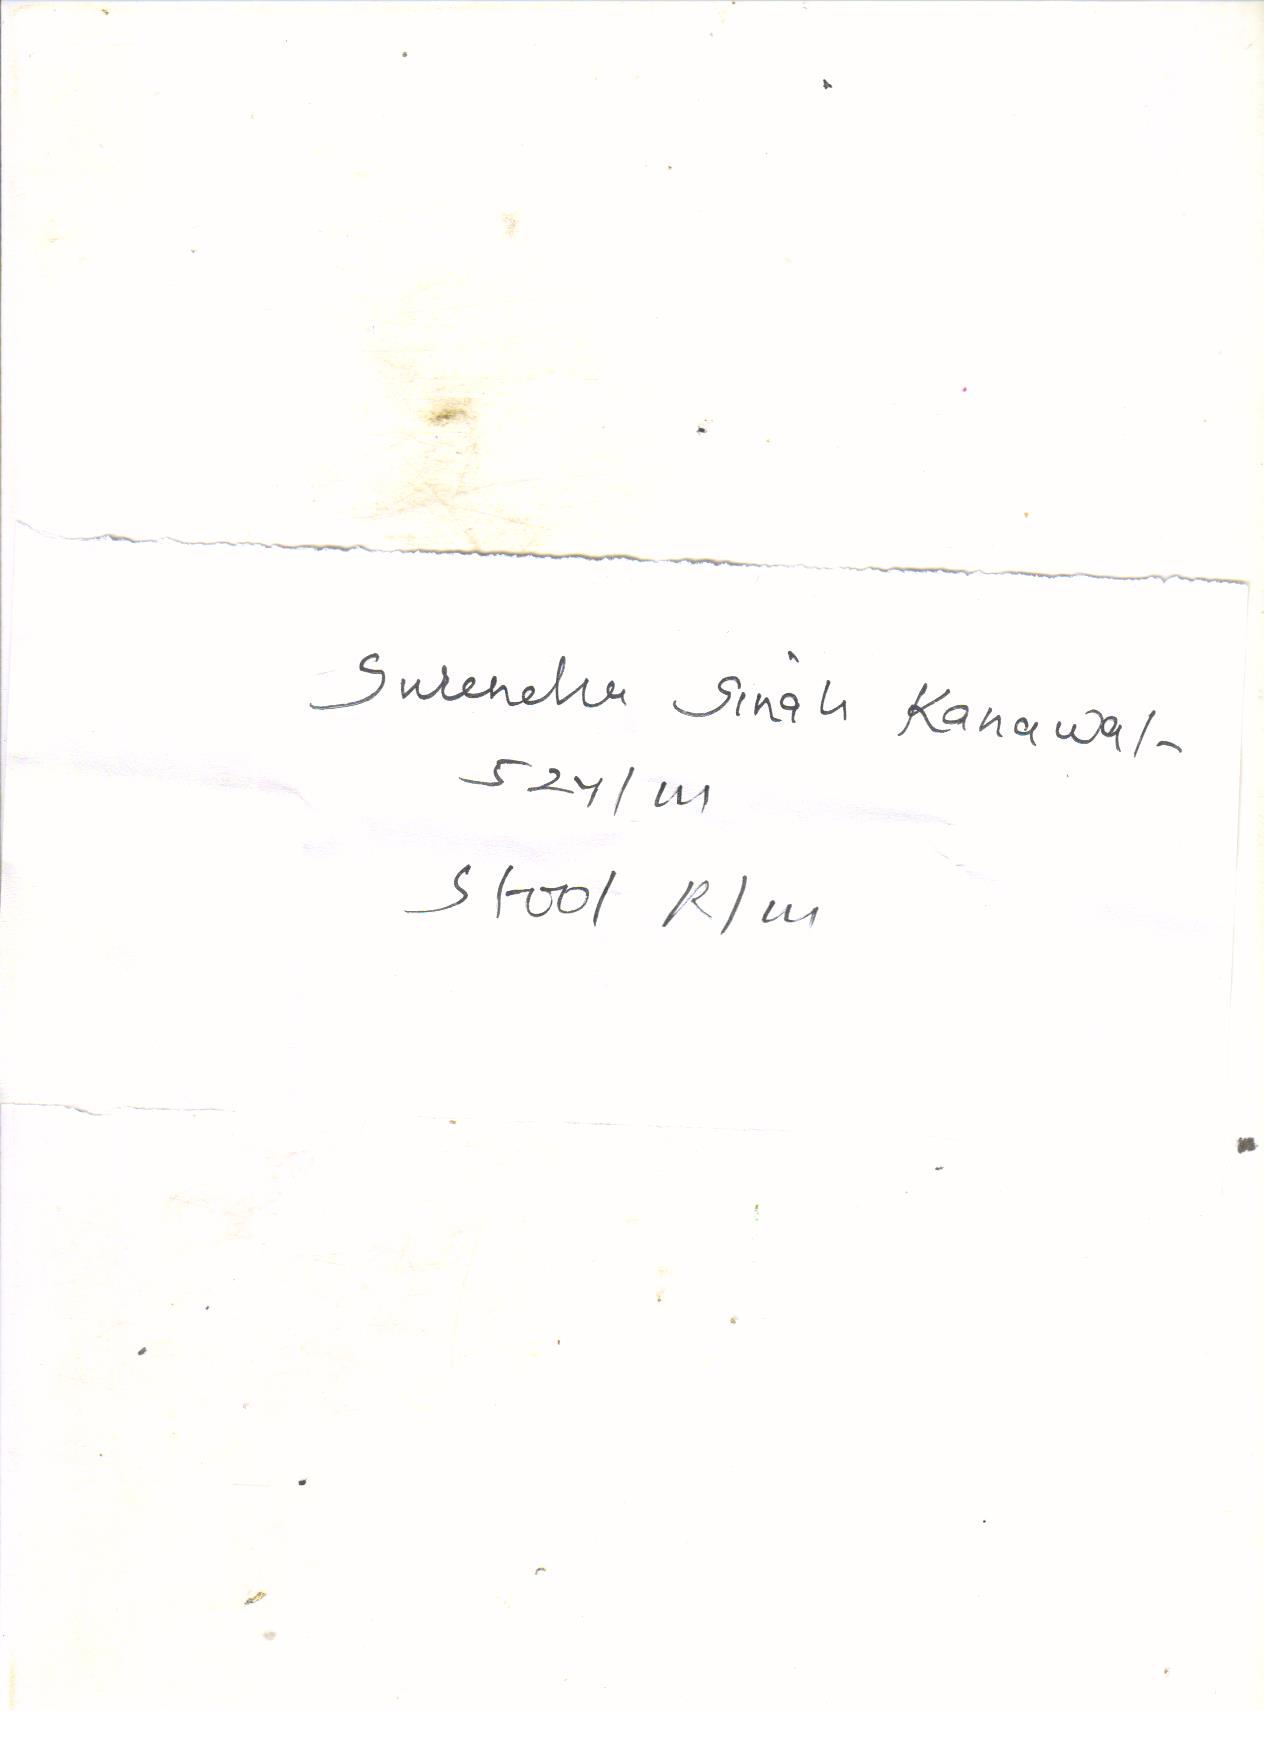 Surendra Singh Kanawal
52y/m
Stool R/m